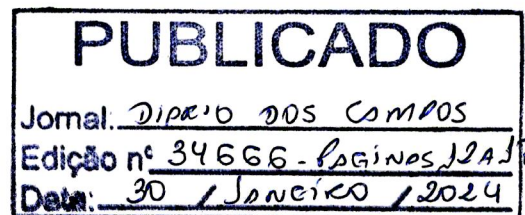 PUBLICADO
Jornal: DIÁRIO DOS CAMPOS
Edição nº 34666 - PAGINAS 12 A
Data: 30 / JANEIRO / 2024